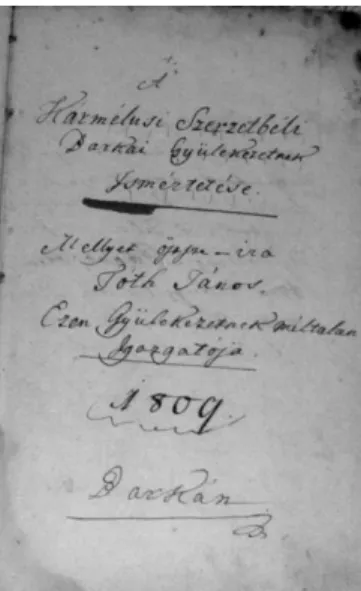 A
Karmélusi Szerzetbéli
Darkai Gyülekezetnek
Ismértetése.
Mellyet öszve-ira
Tóth János.
Ezen Gyülekezetnek méltatlan
Igazgatója.
1809.
Darkán